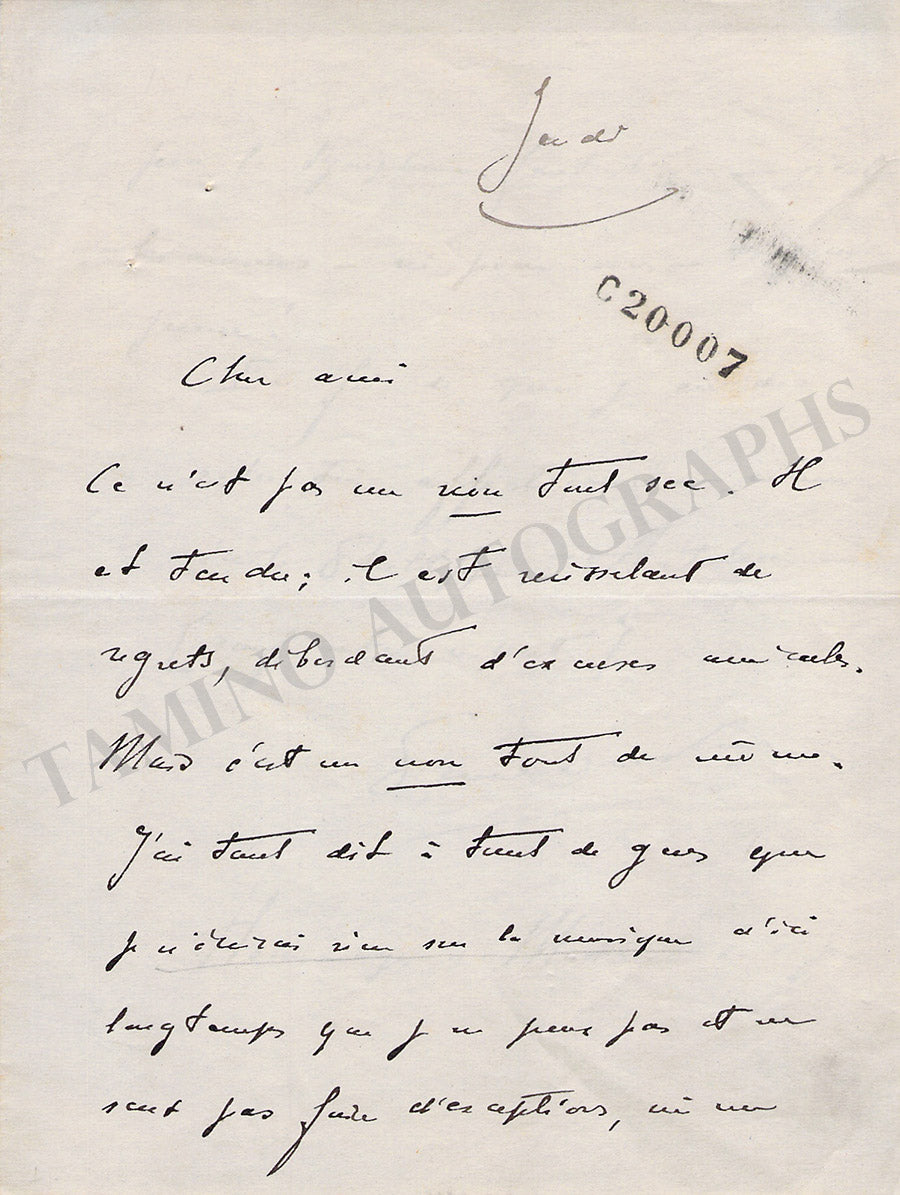 Jeudi
C20007
Cher ami
Ce n'est pas un non tout sec. Il
est tendre; il est ruisselant de
regrets, débordant d'excuses amicales.
Mais c'est un non tout de même.
J'ai tant dit à tant de gens que
je n'écrirai rien sur la musique d'ici
longtemps que je ne peux pas et ne
veux pas faire d'exceptions, ni me
TAMINO AUTOGRAPHS